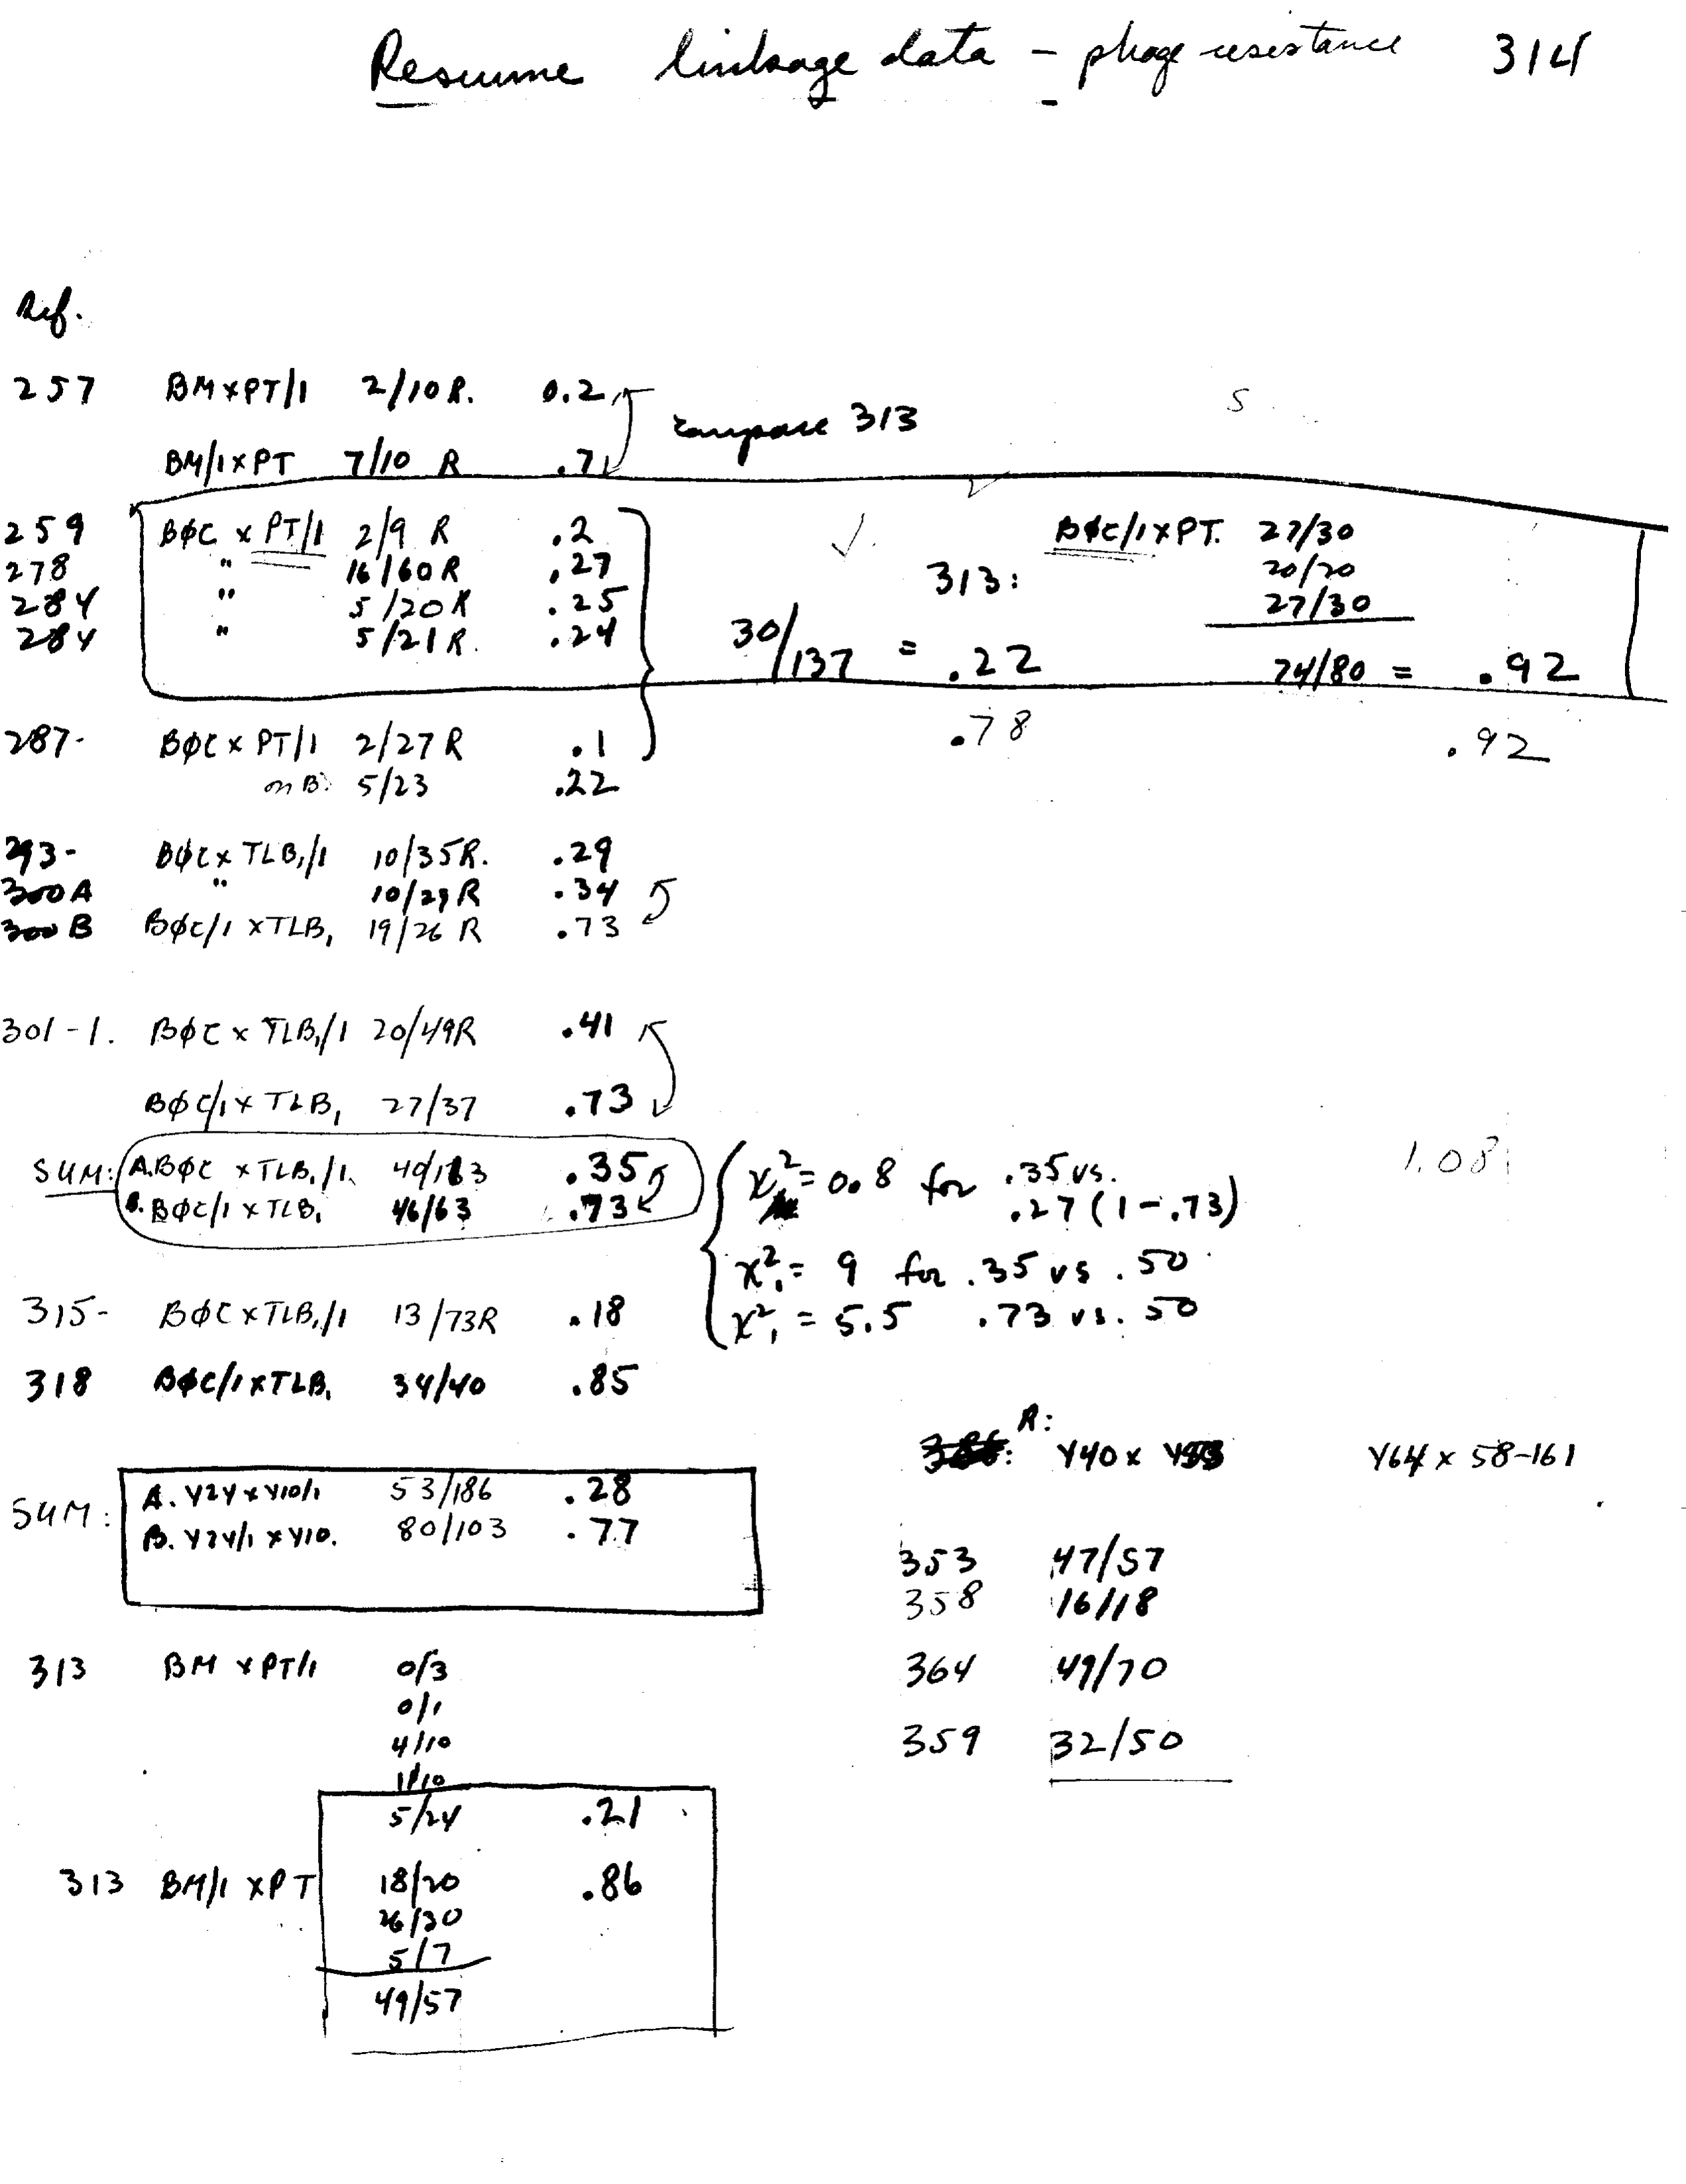 Resume linkage data – phage resistance 314
Ref.
257 BM x PT/1 2/10 R. 0.2
compare 313
BM/1 x PT 7/10 R .7
259 BØC x PT/1 2/9 R .2
278 " 16/60 R .27
284 " 5/20 R .25
284 " 5/21 R. .24
30/137 = .22
313: BØC/1 x PT. 27/30
20/20
27/30
74/80 = .92
.78 .92
287- BØC x PT/1 2/27 R .1
on B: 5/23 .22
293- BØC x TLB1/1 10/35 R. .29
300A " 10/29 R .34
300B BØC/1 x TLB1 19/26 R .73
301-1. BØC x TLB1/1 20/49 R .41
BØC/1 x TLB1 27/37 .73
SUM: A. BØC x TLB1/1 40/113 .35
B. BØC/1 x TLB1 46/63 .73
χ² = 0.8 for .35 vs.
.27 (1-.73)
χ²1 = 9 for .35 vs .50
χ²1 = 5.5 .73 vs. 50
1.08
315- BØC x TLB1/1 13/73 R .18
318 BØC/1 x TLB1 34/40 .85
SUM: A. Y24 x Y10/1 53/186 .28
B. Y24/1 x Y10. 80/103 .77
R:
Y40 x Y53 Y64 x 58-161
353 47/57
358 16/18
364 49/70
359 32/50
313 BM x PT/1 0/3
0/1
4/10
1/10
5/24 .21
313 BM/1 x PT 18/20 .86
26/30
5/7
49/57